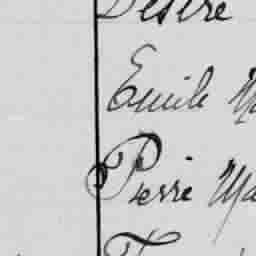 Désiré
Emile Ma
Pierre Ma